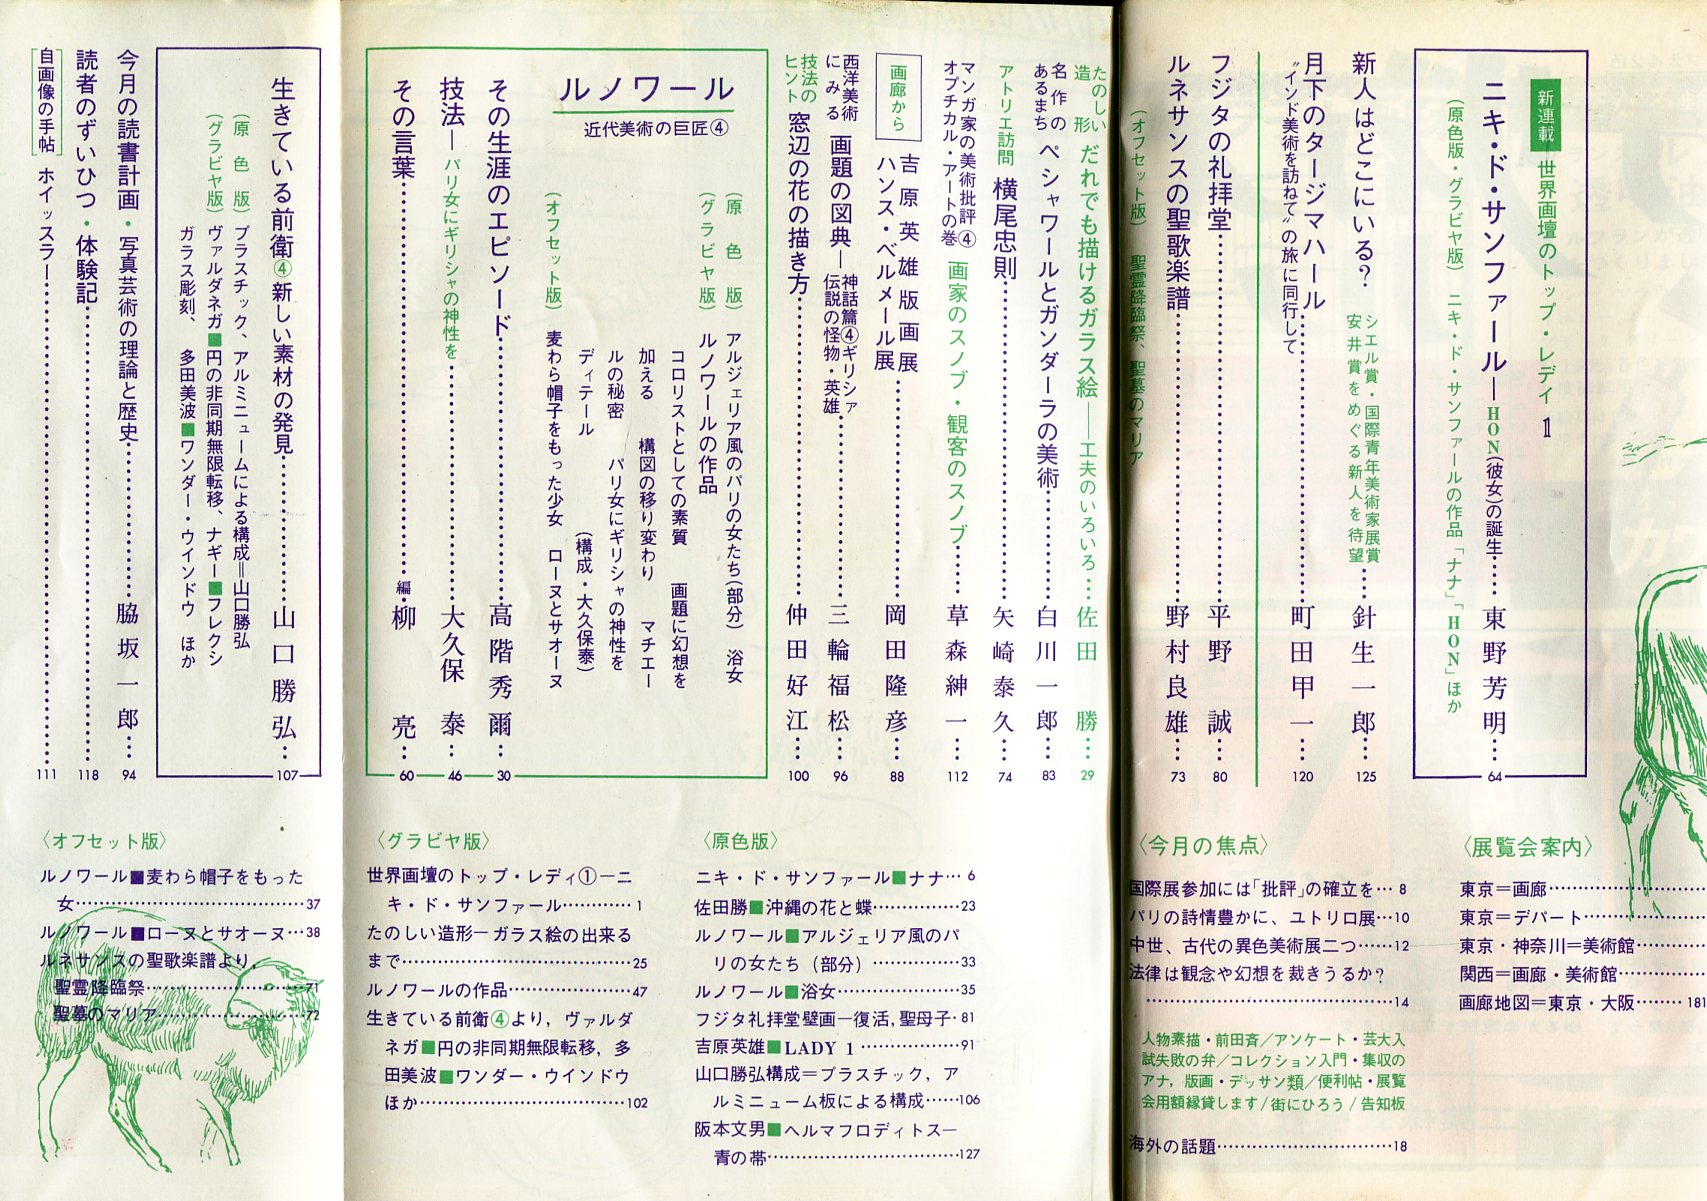 新連載
世界画壇のトップ・レディ 1
ニキ・ド・サンファール―HON(彼女)の誕生……東野芳明…64
(原色版・グラビヤ版) ニキ・ド・サンファールの作品「ナナ」「HON」ほか
新人はどこにいる?
シエル賞・国際青年美術家展賞
安井賞をめぐる新人を待望……針生一郎…125
月下のタージマハール
“インド美術を訪ねて”の旅に同行して……町田甲一…120
フジタの礼拝堂……平野 誠…80
ルネサンスの聖歌楽譜……野村良雄…73
(オフセット版) 聖霊降臨祭、聖墓のマリア
たのしい造形
だれでも描けるガラス絵――工夫のいろいろ…佐田 勝…29
名作のあるまち
ペシャワールとガンダーラの美術……白川一郎…83
アトリエ訪問
横尾忠則……矢崎泰久…74
マンガ家の美術批評④
オプチカル・アートの巻
画家のスノブ・観客のスノブ……草森紳一…112
画廊から
吉原英雄版画展
ハンス・ベルメール展……岡田隆彦…88
西洋美術にみる
画題の図典―神話篇④ギリシァ
伝説の怪物・英雄……三輪福松…96
技法のヒント
窓辺の花の描き方……仲田好江…100
ルノワール
近代美術の巨匠④
(原色版) アルジェリア風のパリの女たち(部分) 浴女
(グラビヤ版) ルノワールの作品
コロリストとしての素質 画題に幻想を
加える 構図の移り変わり マチエー
ルの秘密 パリ女にギリシャの神性を
ディテール (構成・大久保泰)
(オフセット版) 麦わら帽子をもった少女 ローヌとサオーヌ
その生涯のエピソード……高階秀爾…30
技法―パリ女にギリシャの神性を……大久保 泰…46
その言葉……編・柳 亮…60
生きている前衛④新しい素材の発見……山口勝弘…107
(原色版) プラスチック、アルミニュームによる構成=山口勝弘
(グラビヤ版) ヴァルダネガ■円の非同期無限転移、ナギー■フレクシ
ガラス彫刻、 多田美波■ワンダー・ウインドウ ほか
今月の読書計画・写真芸術の理論と歴史……脇坂一郎…94
読者のずいひつ・体験記……118
自画像の手帖 ホイッスラー……111
〈展覧会案内〉
東京=画廊……
東京=デパート……
東京・神奈川=美術館……
関西=画廊・美術館……
画廊地図=東京・大阪……181
〈今月の焦点〉
国際展参加には「批評」の確立を…8
パリの詩情豊かに、ユトリロ展…10
中世、古代の異色美術展二つ……12
法律は観念や幻想を裁きうるか?
……14
人物素描・前田斉/アンケート・芸大入
試失敗の弁/コレクション入門・集収の
アナ,版画・デッサン類/便利帖・展覧
会用額縁貸します/街にひろう/告知板
海外の話題……18
〈原色版〉
ニキ・ド・サンファール■ナナ…6
佐田勝■沖縄の花と蝶……23
ルノワール■アルジェリア風のパ
リの女たち(部分)……33
ルノワール■浴女……35
フジタ礼拝堂壁画―復活,聖母子・81
吉原英雄■LADY 1……91
山口勝弘構成=プラスチック,ア
ルミニューム板による構成……106
阪本文男■ヘルマフロディトス―
青の帯……127
〈グラビヤ版〉
世界画壇のトップ・レディ①―ニ
キ・ド・サンファール……1
たのしい造形―ガラス絵の出来る
まで……25
ルノワールの作品……47
生きている前衛④より,ヴァルダ
ネガ■円の非同期無限転移,多
田美波■ワンダー・ウインドウ
ほか……102
〈オフセット版〉
ルノワール■麦わら帽子をもった
女……37
ルノワール■ローヌとサオーヌ…38
ルネサンスの聖歌楽譜より,
聖霊降臨祭……71
聖墓のマリア……72